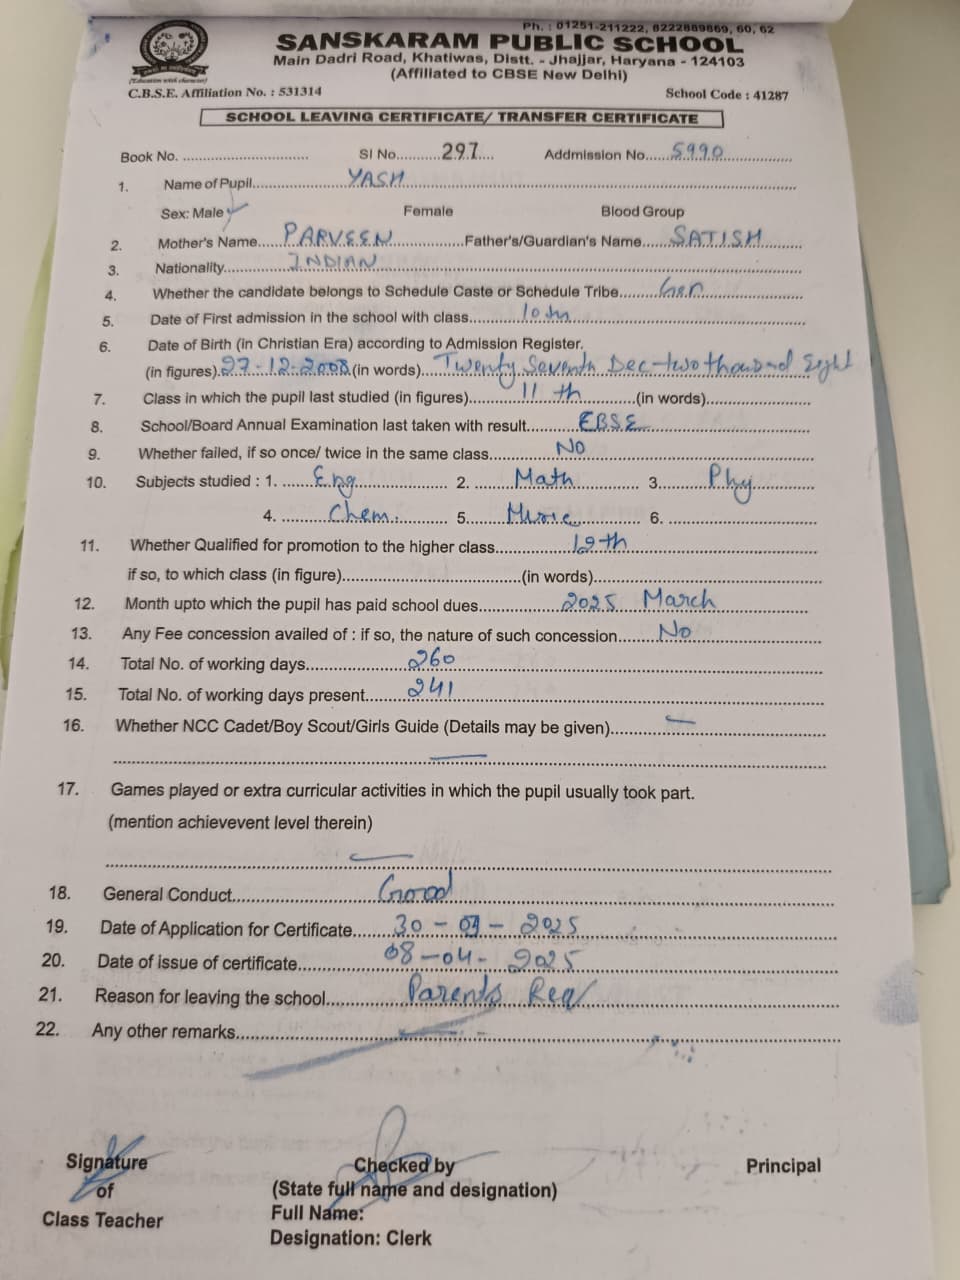 Ph. : 01251-211222, 8222889869, 60, 62
SANSKARAM PUBLIC SCHOOL
Main Dadri Road, Khatiwas, Distt. - Jhajjar, Haryana - 124103
(Affiliated to CBSE New Delhi)
C.B.S.E. Affiliation No. : 531314 School Code : 41287
SCHOOL LEAVING CERTIFICATE/ TRANSFER CERTIFICATE
Book No. ................ Sl No..........297.... Addmission No.....5990................
1. Name of Pupil....................YASH................
Sex: Male ✓ Female Blood Group
2. Mother's Name.....PARVEEN................Father's/Guardian's Name.....SATISH.........
3. Nationality.............INDIAN................
4. Whether the candidate belongs to Schedule Caste or Schedule Tribe........Gen................
5. Date of First admission in the school with class...........10th................
6. Date of Birth (in Christian Era) according to Admission Register.
(in figures).27-12-2008.(in words)....Twenty Seventh Dec-two thousand Eight
7. Class in which the pupil last studied (in figures)...........11 th...........(in words)................
8. School/Board Annual Examination last taken with result...........CBSE................
9. Whether failed, if so once/ twice in the same class.............No................
10. Subjects studied : 1. ......Eng................ 2. ........Math............ 3...........Phy............
4. .........Chem.......... 5.........Music............ 6. ................
11. Whether Qualified for promotion to the higher class...............12th................
if so, to which class (in figure)................(in words)................
12. Month upto which the pupil has paid school dues...............2025 March................
13. Any Fee concession availed of : if so, the nature of such concession.......No................
14. Total No. of working days....................260................
15. Total No. of working days present........241................
16. Whether NCC Cadet/Boy Scout/Girls Guide (Details may be given)...........—................
................—................
17. Games played or extra curricular activities in which the pupil usually took part.
(mention achievevent level therein)
................—................
18. General Conduct................Good................
19. Date of Application for Certificate.......30 - 03 - 2025................
20. Date of issue of certificate................08-04- 2025................
21. Reason for leaving the school.............Parents Req................
22. Any other remarks................
Signature Checked by Principal
of (State full name and designation)
Class Teacher Full Name:
Designation: Clerk